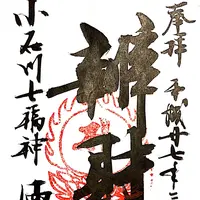 奉拝 平成廿七年二
辨財
小石川七福神